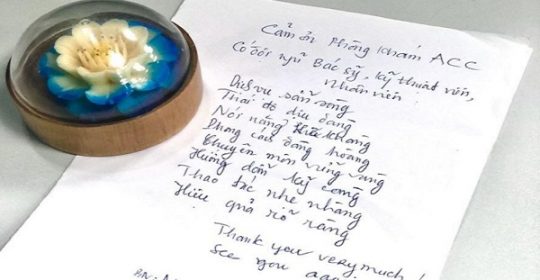 Cảm ơn Phòng khám ACC
Có đội ngũ Bác sỹ, kỹ thuật viên,
nhân viên:
Dịch vụ sẵn sàng
Thái độ dịu dàng
Nói năng khang
Phong cách đàng hoàng
Chuyên môn vững vàng
Hướng dẫn kỹ càng
Thao tác nhẹ nhàng
Hiệu quả rõ ràng
Thank you very much!
See you
BN: